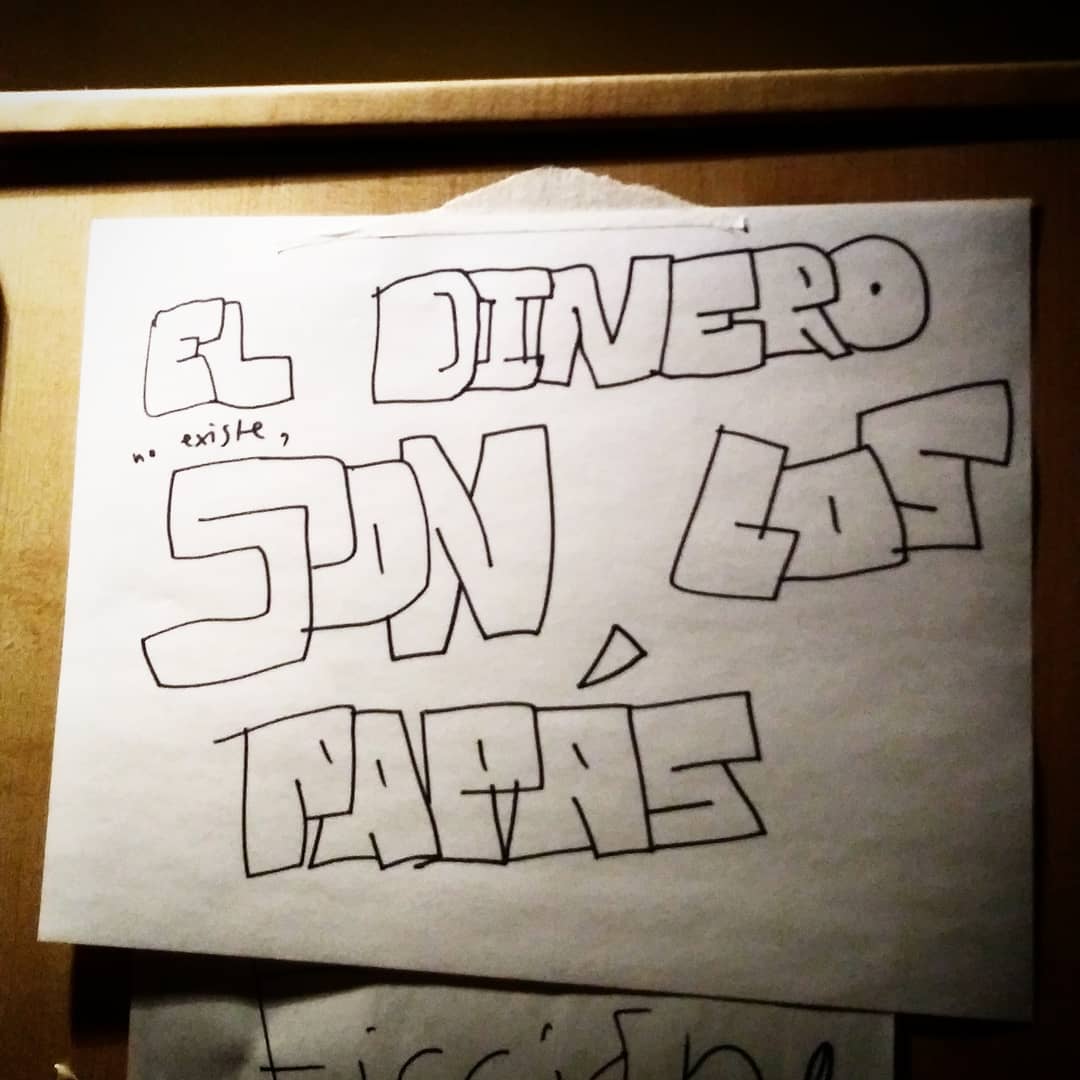 EL DINERO
no existe,
SON LOS
PAPÁS